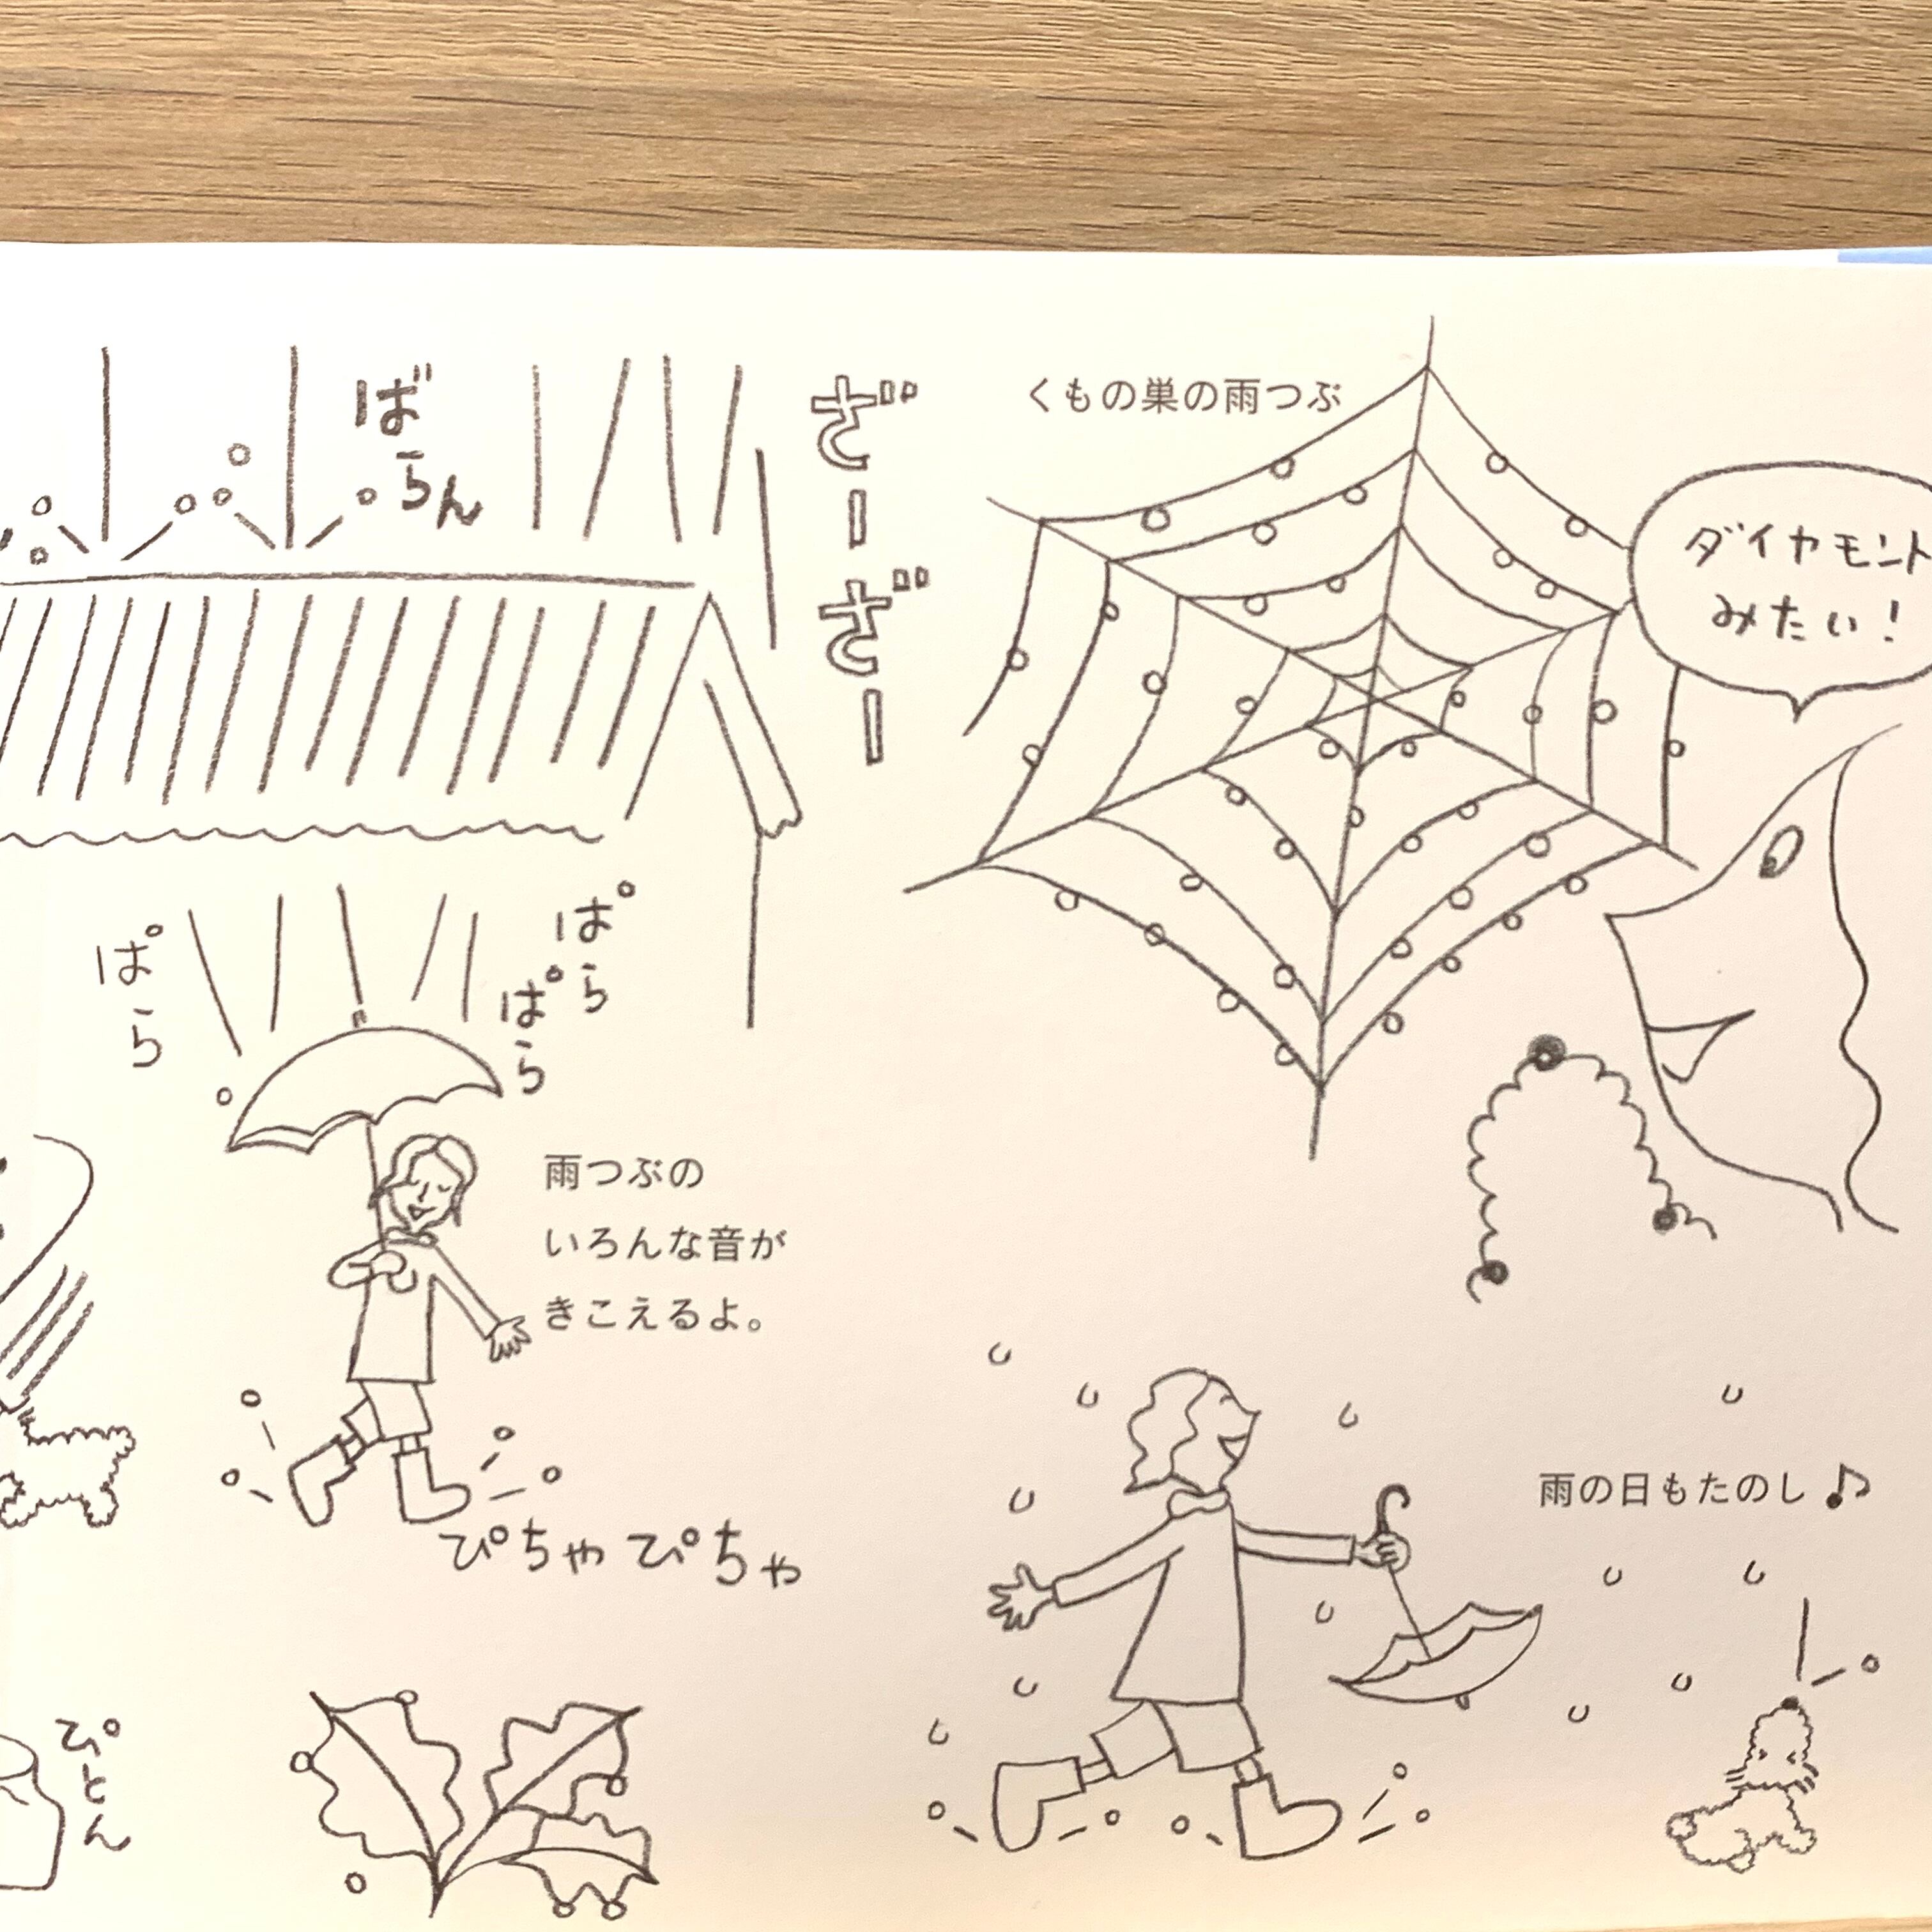 ばらん
ざーざー
くもの巣の雨つぶ
ダイヤモンド
みたい!
ぱら
ぱら
ぱら
雨つぶの
いろんな音が
きこえるよ。
ぴちゃぴちゃ
雨の日もたのし♪
ぴとん